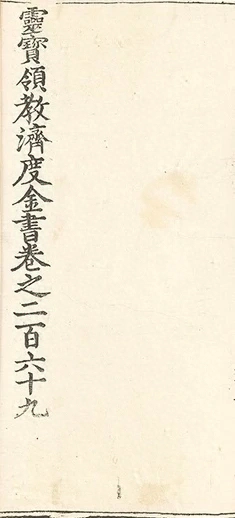 靈寶領教濟度金書卷之二百六十九